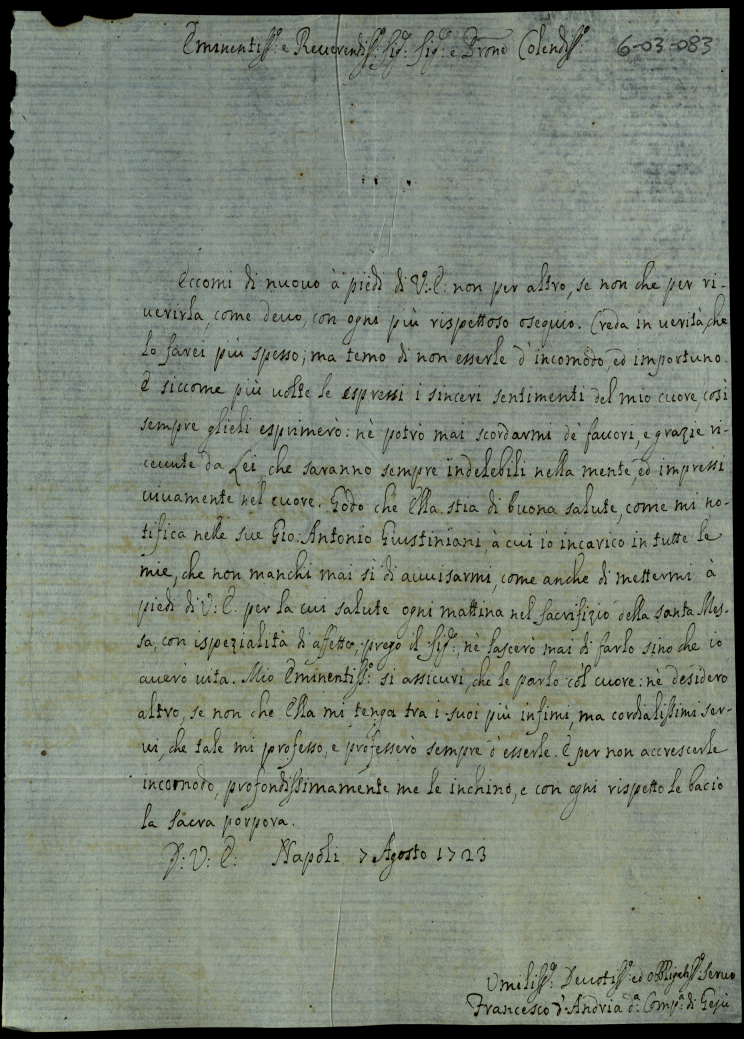 Eminentiss.º e Reuerendiss.º Sig.r Sig.r e Prone Colendiss.º
6-03-083
Eccomi di nuouo à piedi di V: E: non per altro, se non che per ri-
uerirla, come deuo, con ogni più rispettoso osequio. Creda in uerità, che
lo farei più spesso; ma temo di non esserle d'incomodo, ed importuno.
E siccome più uolte le espressi i sinceri sentimenti del mio cuore, così
sempre glieli esprimerò: nè potrò mai scordarmi de' fauori, e grazie ri-
ceuute da Lei che saranno sempre indelebili nella mente, ed impressi
uiuamente nel cuore. Godo che Ella stia di buona salute, come mi no-
tifica nelle sue Gio: Antonio Giustiniani, à cui io incarico in tutte le
mie, che non manchi mai sì di auuisarmi, come anche di mettermi à
piedi di V: E. per la cui salute ogni mattina nel sacrifizio della santa Mes-
sa, con ispezialità di affetto, prego il Sig.r, nè lascerò mai di farlo sino che io
auerò uita. Mio Eminentiss.º si assicuri, che le parlo col cuore: nè desidero
altro, se non che Ella mi tenga tra i suoi più infimi, ma cordialissimi ser-
ui, che tale mi professo, e professerò sempre d'esserle. E per non accrescerle
incomodo, profondissimamente me le inchino, e con ogni rispetto le bacio
la sacra porpora.
D: V: E: Napoli 7 Agosto 1723
Umiliss.º Deuotiss.º ed obbligatiss.º seruo
Francesco d'Andria d.a Comp.a di Gesù